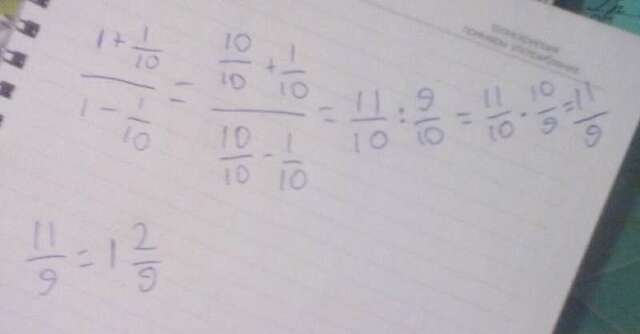 (1 + 1/10)/(1 - 1/10) = (10/10 + 1/10)/(10/10 - 1/10) = 11/10 : 9/10 = 11/10 · 10/9 = 11/9
11/9 = 1 2/9